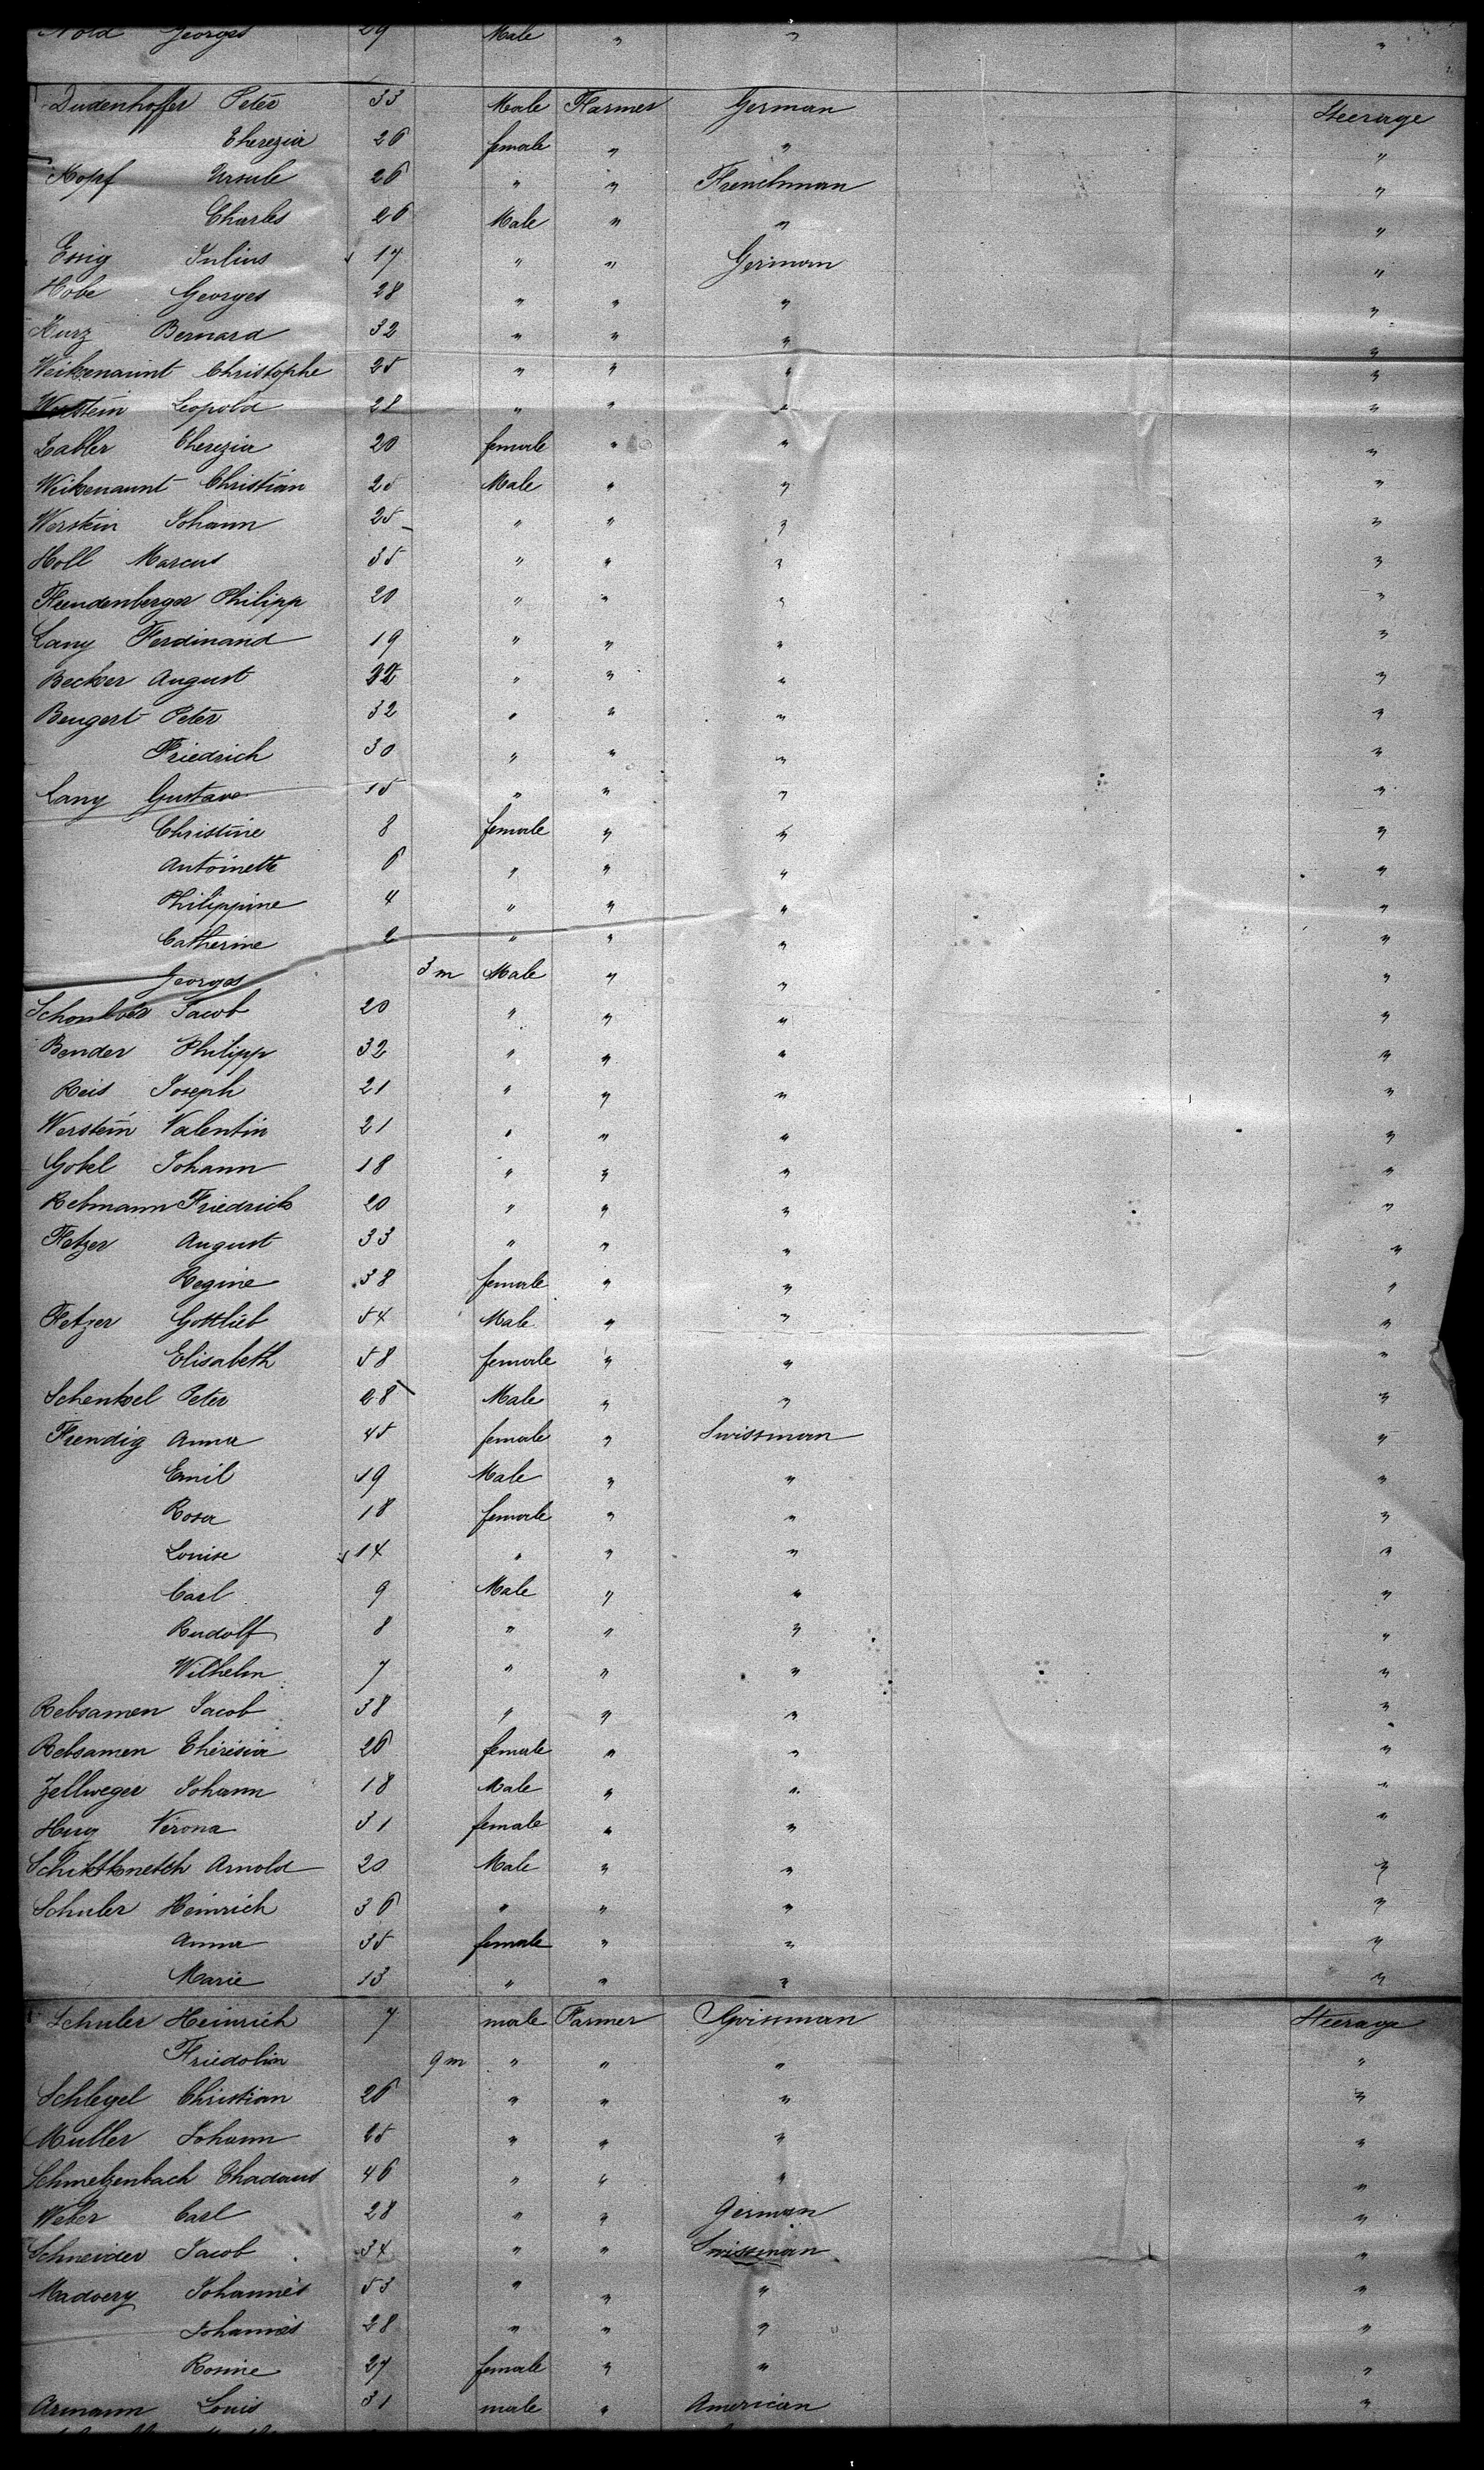 Nold Georges 29 Male " "  "
Dudenhoffer Peter 33 Male Farmer German Steerage
Therezia 26 female " " "
Kopf Ursule 26 " " Frenchman "
Charles 26 Male " " "
Essig Julius 17 " " German "
Hobe Georges 28 " " " "
Kurz Bernard 32 " " " "
Weikenaunt Christophe 25 " " " "
Werstein Leopold 28 " " " "
Labler Therezia 20 female " " "
Weikenaunt Christian 25 Male " " "
Werstein Johann 25 " " " "
Holl Marcus 35 " " " "
Freudenberger Philipp 20 " " " "
Lany Ferdinand 19 " " " "
Becker August " " " "
Beugert Peter 32 " " " "
Friedrich 30 " " " "
Lany Gustave 15 " " " "
Christine 8 female " " "
Antoinette 6 " " " "
Philippine 4 " " " "
Catherine 2 " " " "
Georges 3 m Male " " "
Jacob 20 " " " "
Bender Philipp 32 " " " "
Reis Joseph 21 " " " "
Werstein Valentin 21 " " " "
Gokel Johann 18 " " " "
Rebmann Friedrich 20 " " " "
Fetzer August 33 " " " "
Regine 38 female " " "
Fetzer Gottlieb 54 Male " " "
Elisabeth 58 female " " "
Schenkel Peter 28 Male " " "
Frendig Anna 45 female " Swissman "
Emil 19 Male " " "
Rosa 18 female " " "
Louise 14 " " " "
Carl 9 Male " " "
Rudolf 8 " " " "
Wilhelm 7 " " " "
Rebsamen Jacob 38 " " " "
Rebsamen Thérèsia 26 female " " "
Zellweger Johann 18 Male " " "
Hug Vérona 31 female " " "
Arnold 20 Male " " "
Schuler Heinrich 36 " " " "
Anna 35 female " " "
Marie 13 " " " "
Schuler Heinrich 7 male Farmer Swissman Steerage
Friedolin 9 m " " " "
Schlegel Christian 26 " " " "
Muller Johann 25 " " " "
Schmelzenbach Thadaus 46 " " " "
Weber Carl 28 " " German "
Schneider Jacob 34 " " Swissman "
Madoery Johannes 53 " " " "
Johannes 28 " " " "
Rosine 27 female " " "
Armann Louis 31 male " American "